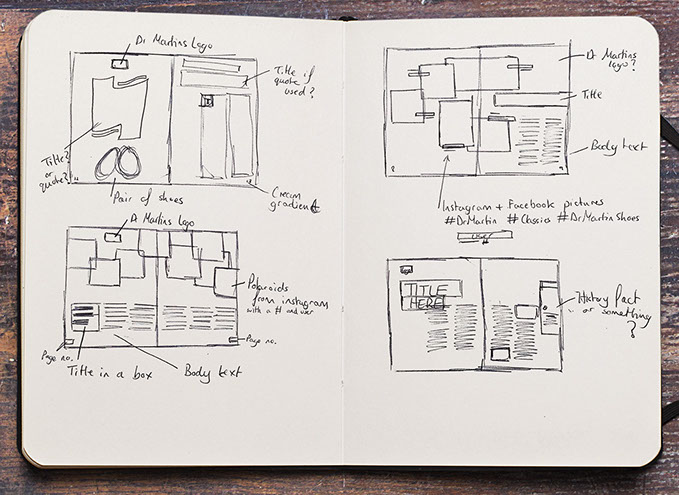 Dr Martins Logo
Title if
quote
used?
Title?
or
quote?
Pair of shoes
Cream
gradient
Dr Martins Logo
Polaroids
from instagram
with a # and user
Page no.
Page no.
Title in a box
Body text
Dr Martins
logo?
Title
Body text
8
9
Instagram + Facebook pictures
#DrMartin #Classies #DrMartinShoes
TITLE
HERE
History fact
or something
?